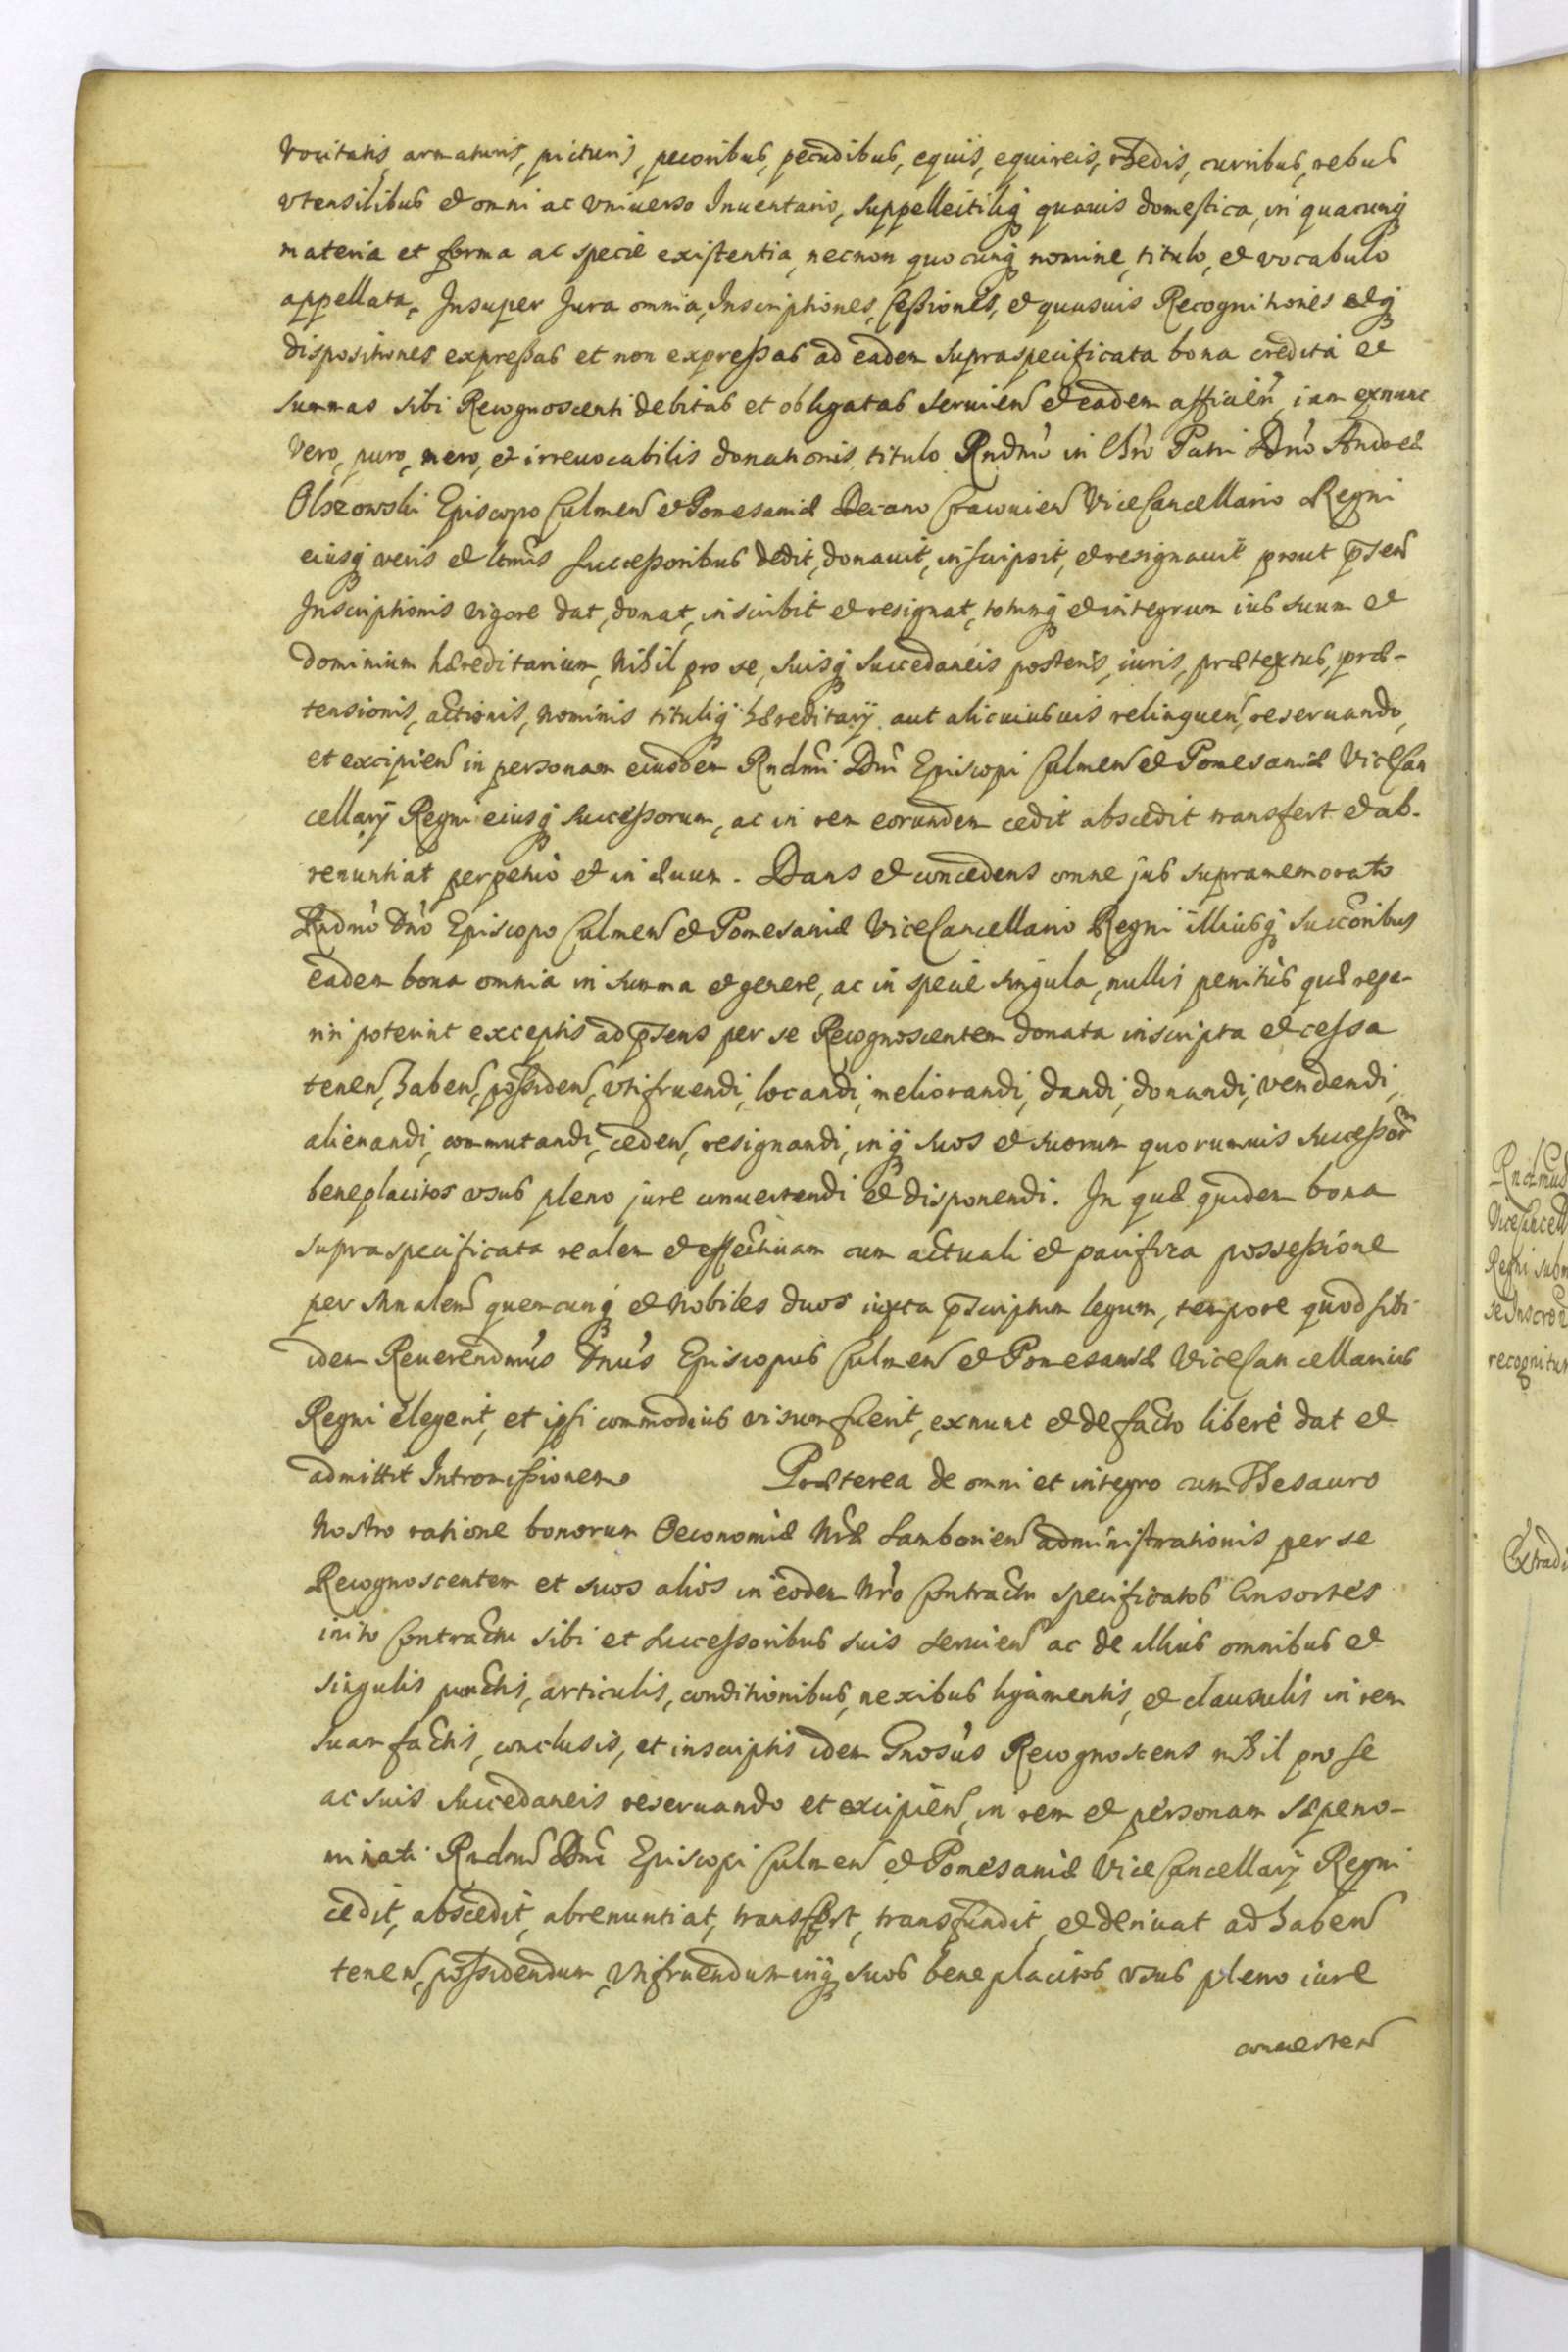 vocitatis, armaturis, picturis, pecoribus, pecudibus, equis, equireis, rhedis, curribus, rebus
vtensilibus et omni ac vniuerso Inuentario, suppellectiliq quauis domestica, in quacunq
materia et forma ac specie existentia, necnon quocunq nomine, titulo, et vocabulo
appellata. Insuper Jura omnia, Inscriptiones, Cessiones, et quasuis Recognitiones
dispositiones expressas et non expressas ad eadem supraspecificata bona credita et
summas sibi Recognoscenti debitas et obligatas seruien et eadem afficien, iam exnunc
vero, puro, mero, et irreuocabilis donationis titulo Rndmo in Chro Patri Dno Andreæ
Olszowski Episcopo Culmen et Pomesaniæ Decano Cracouien ViceCancellario Regni
eiusq veris et ltmis Successoribus dedit, donauit, inscripsit, et resignauit prout pnsen
Inscriptionis vigore dat, donat, inscribit et resignat, totumq et integrum ius suum et
dominium hæreditarium, Nihil pro se, suisq succedaneis posteris, iuris, prætextus, præ-
tensionis, actionis, nominis tituliq hæreditarij aut alicuiusuis relinquen, reseruando,
et excipien in personam eiusdem Rndmi Dni Episcopi Culmen et Pomesaniæ ViceCan
cellarij Regni eiusq successorum, ac in rem eorundem cedit abscedit transfert et ab-
renuntiat perpetuo et in æuum. Dans et concedens omne jus supramemorato
Rndmo Dno Episcopo Culmen et Pomesaniæ ViceCancellario Regni illiusq succoribus
eadem bona omnia in summa et genere, ac in specie singula, nullis penitus quæ repe-
riri poterint exceptis ad pnsens per se Recognoscentem donata inscripta et cessa
tenen, haben, possiden, vtifruendi, locandi, meliorandi, dandi, donandi, vendendi,
alienandi, commutandi, ceden, resignandi, inq suos et suorum quorumuis successor
beneplacitos vsus pleno jure conuertendi et disponendi. In quæ quidem bona
supraspecificata realem et effectiuam cum actuali et pacifica possessione
per Mnlem quemcunq et Nobiles duos iuxta pscriptum legum, tempore quod sibi
idem Reuerendmus Dnus Episcopus Culmen et Pomesaniæ ViceCancellarius
Regni elegerit, et ipsi commodius visum fuerit, exnunc et de facto liberè dat et
admittit Intromissionem. Præterea de omni et integro cum Thesauro
Nostro ratione bonorum Oeconomiæ Nræ Samborien administrationis per se
Recognoscentem et suos alios in eodem Nro Contractu specificatos Consortes
inito Contractu sibi et successoribus suis seruien ac de illius omnibus et
singulis punctis, articulis, conditionibus, nexibus ligamentis, et clausulis in rem
suam factis, conclusis, et inscriptis idem Gnosus Recognoscens nihil pro se
ac suis succedaneis reseruando et excipien, in rem et personam sæpeno-
minati Rndmi Dni Episcopi Culmen et Pomesaniæ ViceCancellarij Regni
cedit, abscedit, abrenuntiat, transfert, transfundit, et deriuat ad haben
tenen, possidendum, vtifruendum inq suos beneplacitos vsus pleno iure
conuerten
Rndmus
ViceCancell
Regni
recognitum